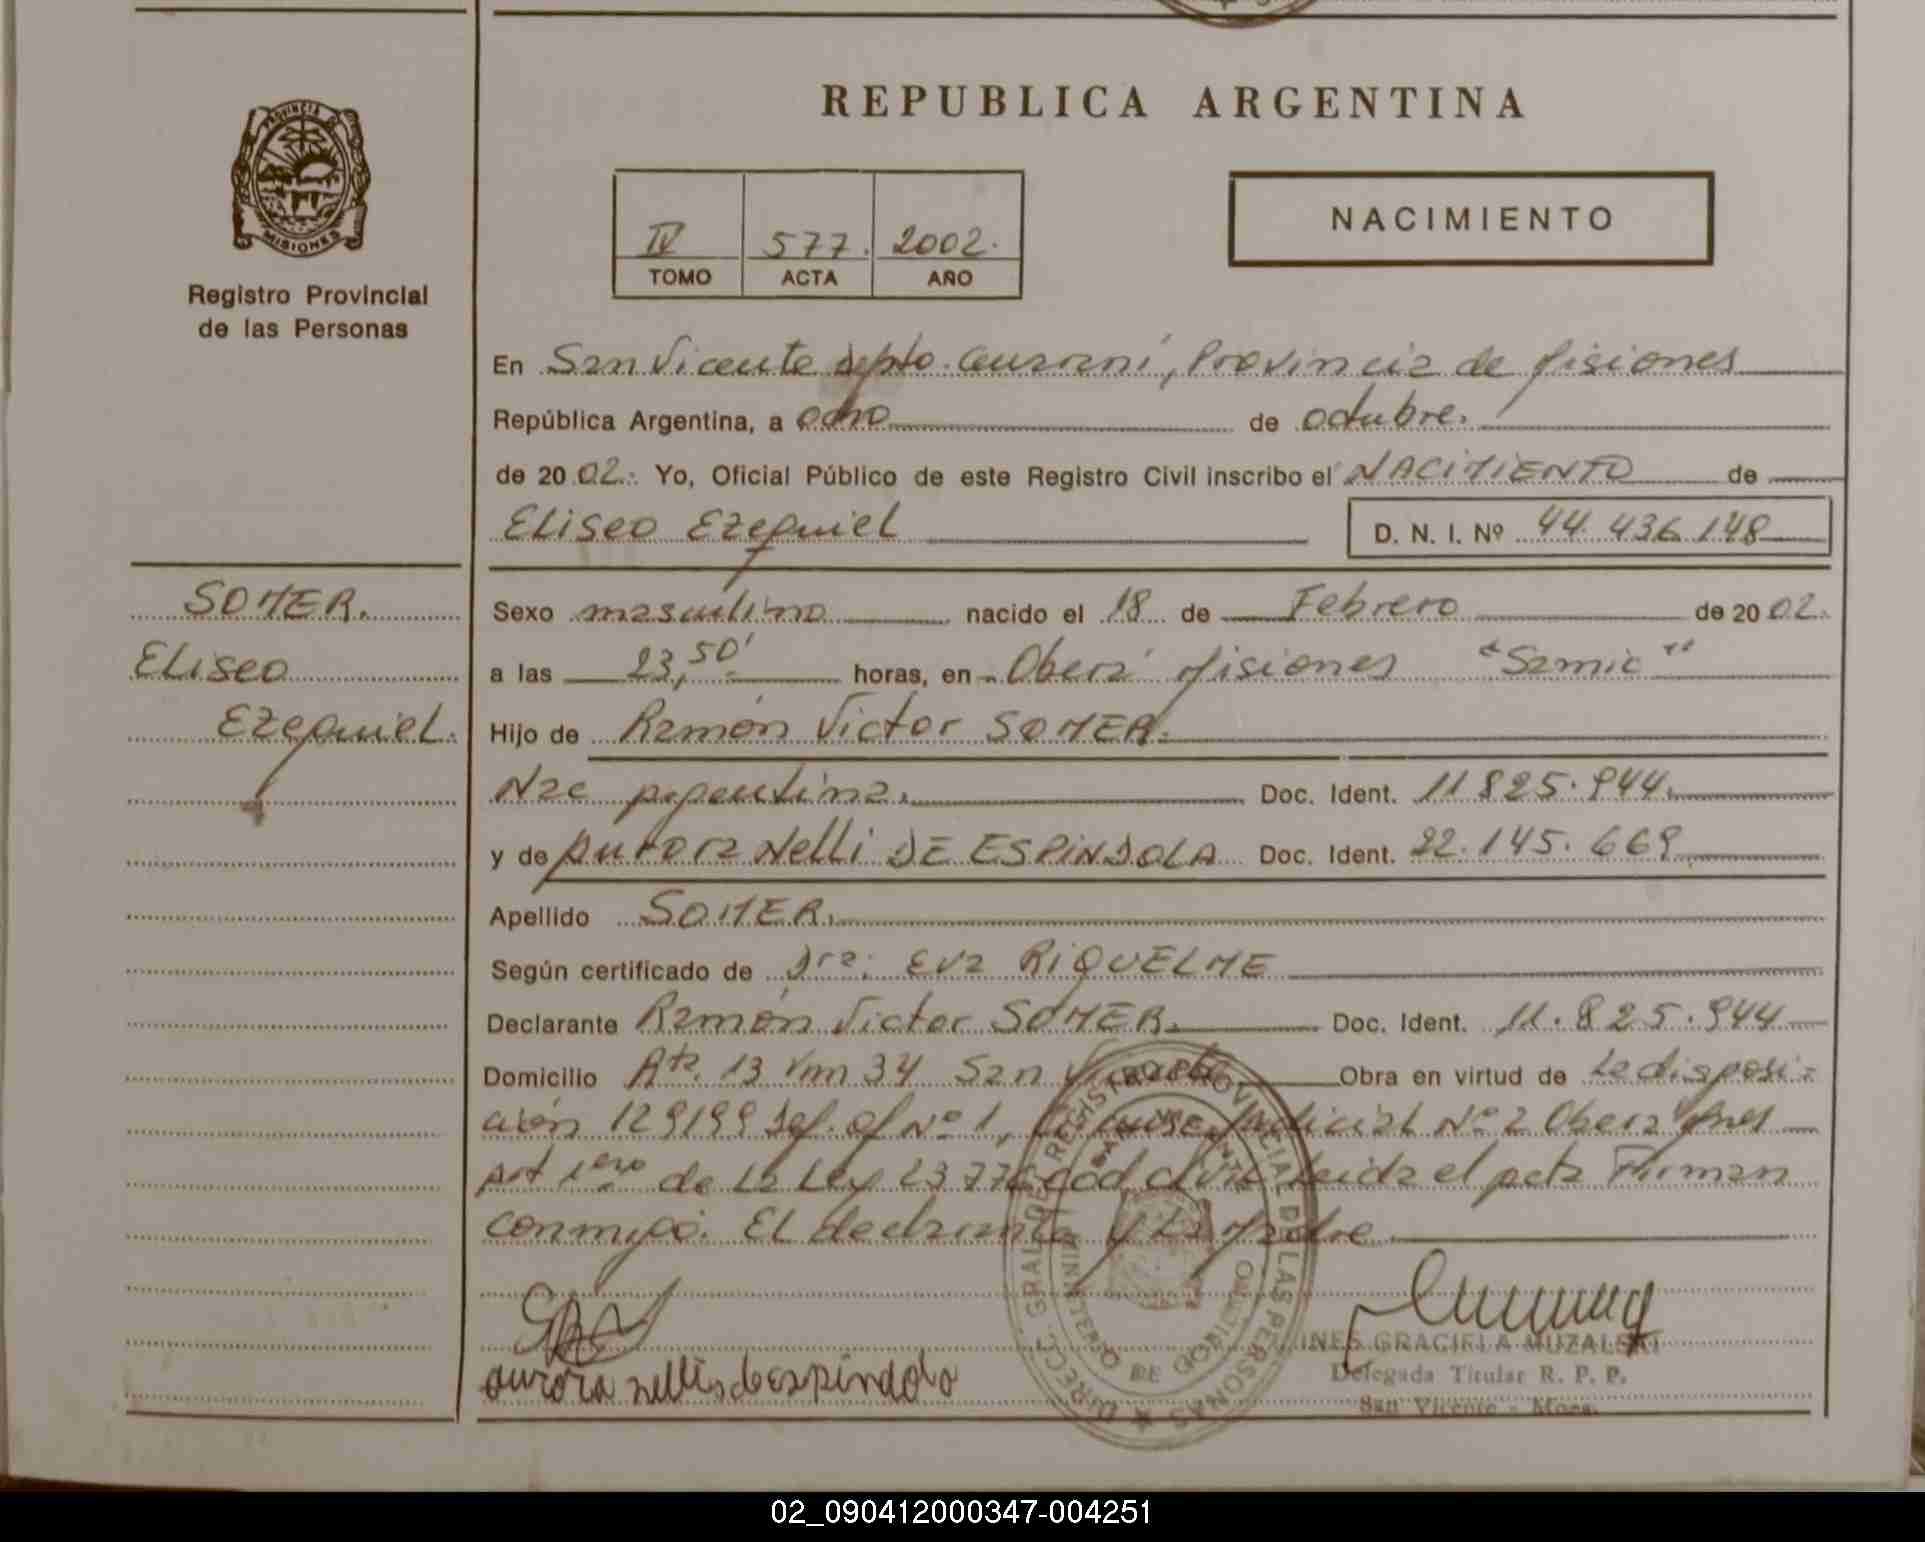 REPUBLICA ARGENTINA
PROVINCIA DE
MISIONES
Registro Provincial
de las Personas
IV 577. 2002.
TOMO ACTA AÑO
NACIMIENTO
En San Vicente depto. Guaraní, Provincia de Misiones
República Argentina, a ocho de octubre.
de 20 02. Yo, Oficial Público de este Registro Civil inscribo el NACIMIENTO de
ELISEO EZEQUIEL D. N. I. Nº 44.436.148
SOMER.
ELISEO
EZEQUIEL.
Sexo masculino nacido el 18 de Febrero de 20 02.
a las 23,50' horas, en Oberá Misiones "Samic"
Hijo de Ramón Victor SOMER.
Nac Argentina. Doc. Ident. 11.825.944.
y de Aurora Nelli DE ESPINDOLA Doc. Ident. 22.145.669
Apellido SOMER.
Según certificado de Dra: Eva RIQUELME
Declarante Ramón Victor SOMER. Doc. Ident. 11.825.944
Domicilio 13 km 34 San Vicente Obra en virtud de La disposi-
ción 129/99 Def. of Nº 1, Judicial Nº 2 Oberá Mnes
Art 1ero de La Ley 23.776 cod civil Leida el acta Firman
conmigo. El declarante y La Madre
aurora nelli despindola
DIRECC. GRAL. DE REGISTRO PROVINCIAL DE LAS PERSONAS
SAN VICENTE
INES GRACIELA MUZALSKI
Delegada Titular R. P. P.
San Vicente - Mnes.
02_090412000347-004251